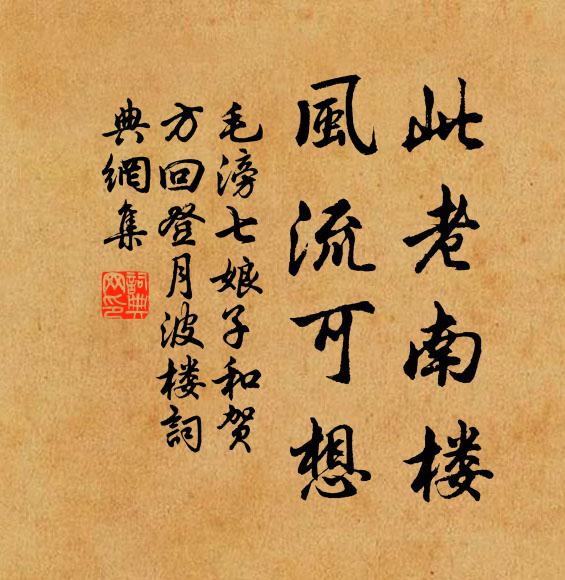 此老南楼
風流可想
毛滂七娘子和賀
方回登月波楼詞
典網集
詞典
网印